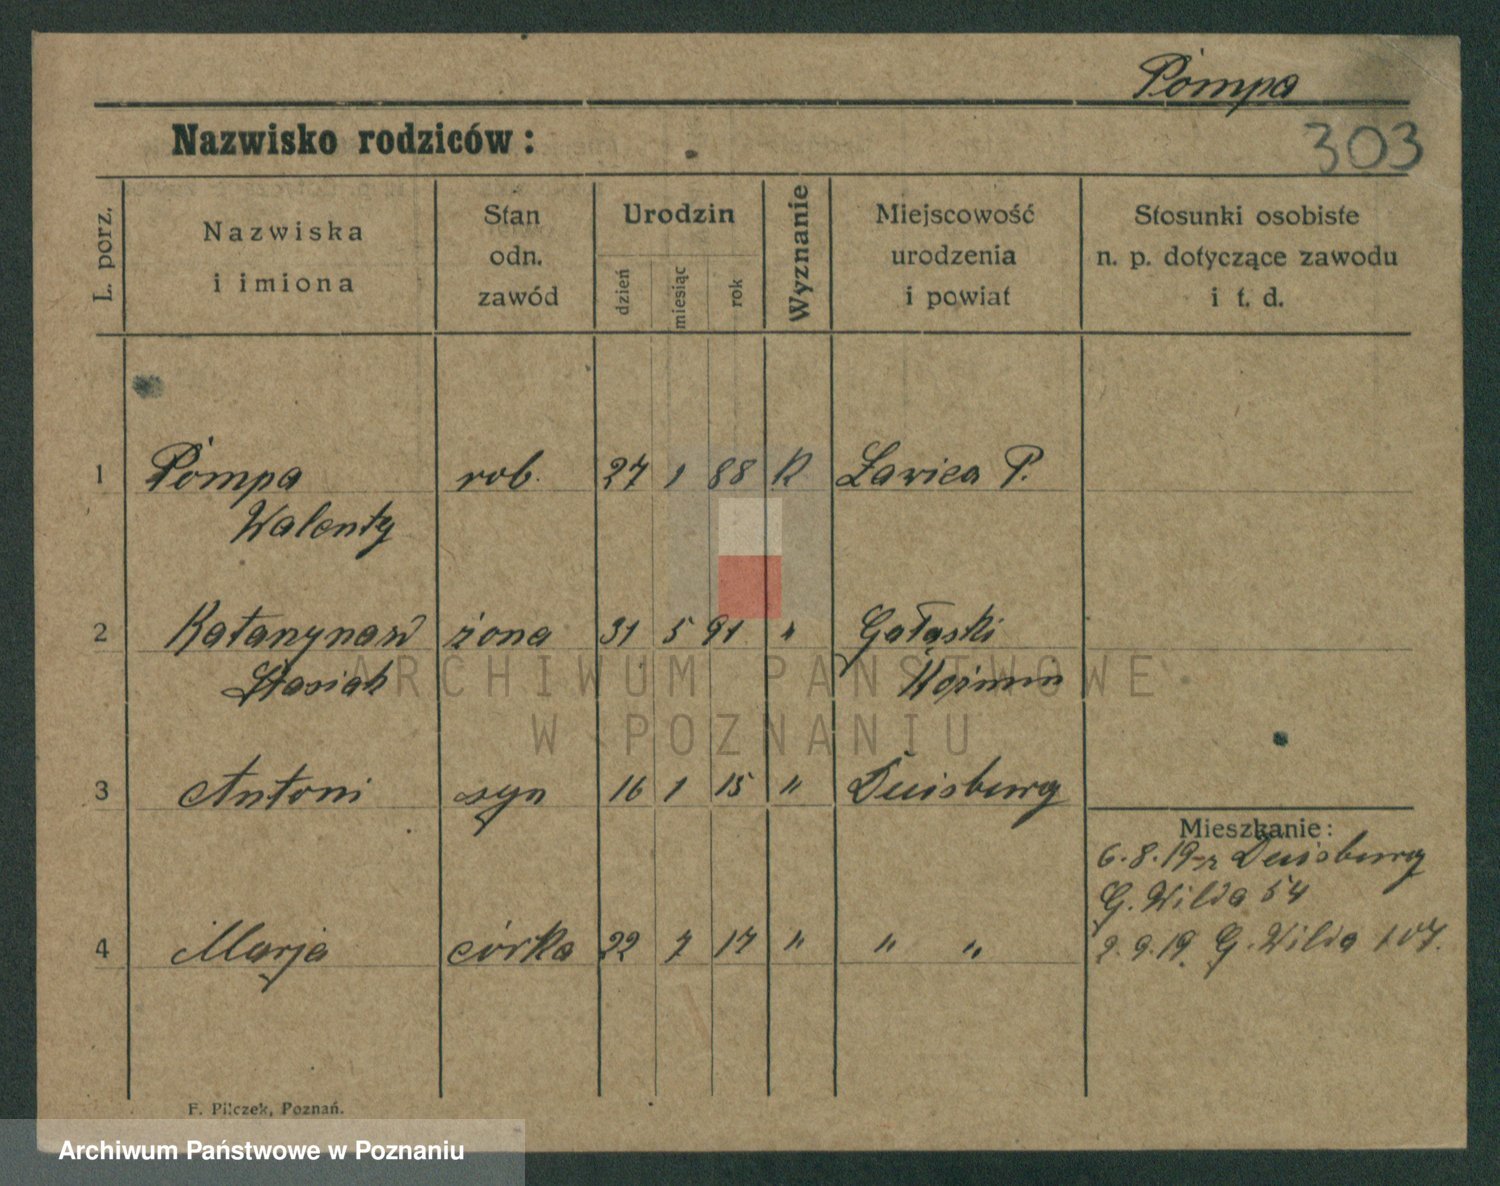 Pómpa
303
Nazwisko rodziców:
L. porz.
Nazwiska
i imiona
Stan
odn.
zawód
Urodzin
dzień
miesiąc
rok
Wyznanie
Miejscowość
urodzenia
i powiat
Stosunki osobiste
n. p. dotyczące zawodu
i t. d.
1 Pómpa rob. 27 1 88 K Ławica P.
Walenty
2 żona 31 5 91 "
Stasiak
3 Antoni syn 16 1 15 " Duisburg
Mieszkanie:
6.8.19 z Duisburg
G. Wilda 54
4 Marja córka 22 7 17 " " "
2.9.19. G. Wilda 107.
F. Pilczek, Poznań.
ARCHIWUM PAŃSTWOWE
W POZNANIU
Archiwum Państwowe w Poznaniu